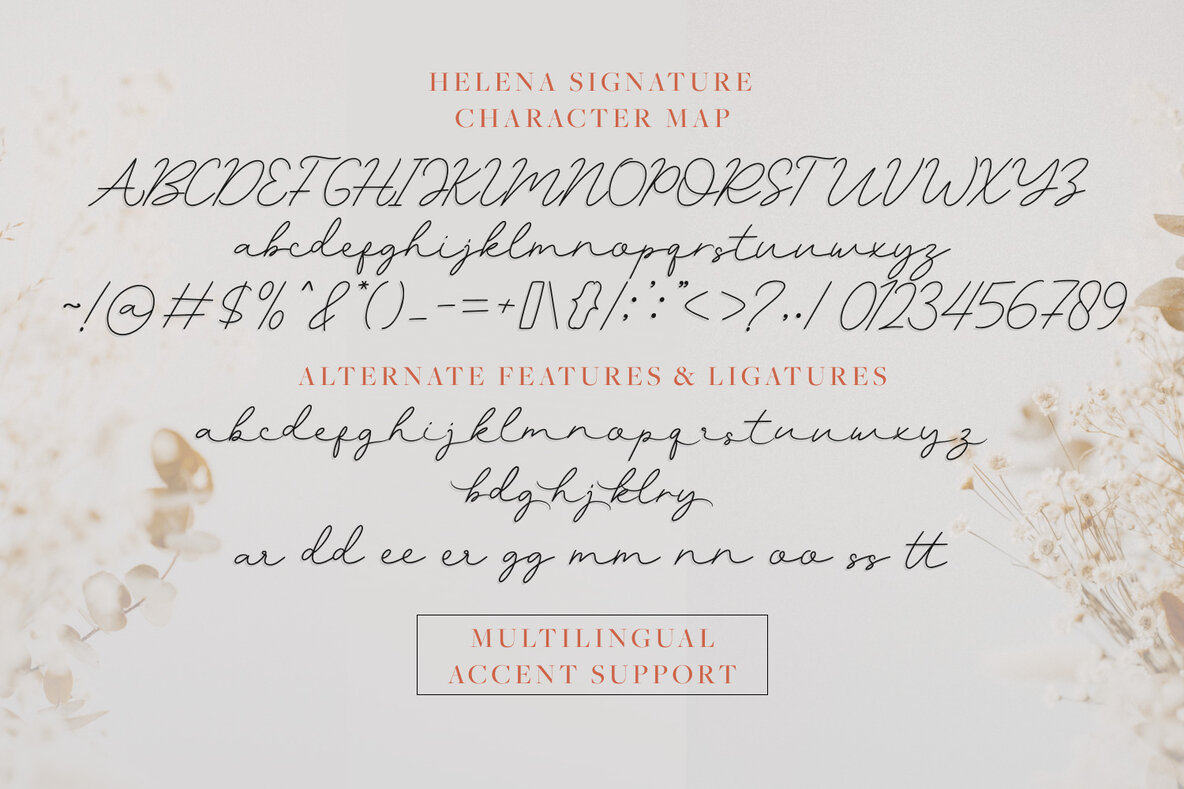 HELENA SIGNATURE
CHARACTER MAP
ABCDEFGHIJKLMNOPQRSTUVWXYZ
abcdefghijklmnopqrstuvwxyz
~!@#$%^&*()_-=+[]\{}|;':"<>?,./ 0123456789
ALTERNATE FEATURES & LIGATURES
abcdefghijklmnopqrstuvwxyz
bdghjklry
ar dd ee er gg mm nn oo ss tt
MULTILINGUAL
ACCENT SUPPORT